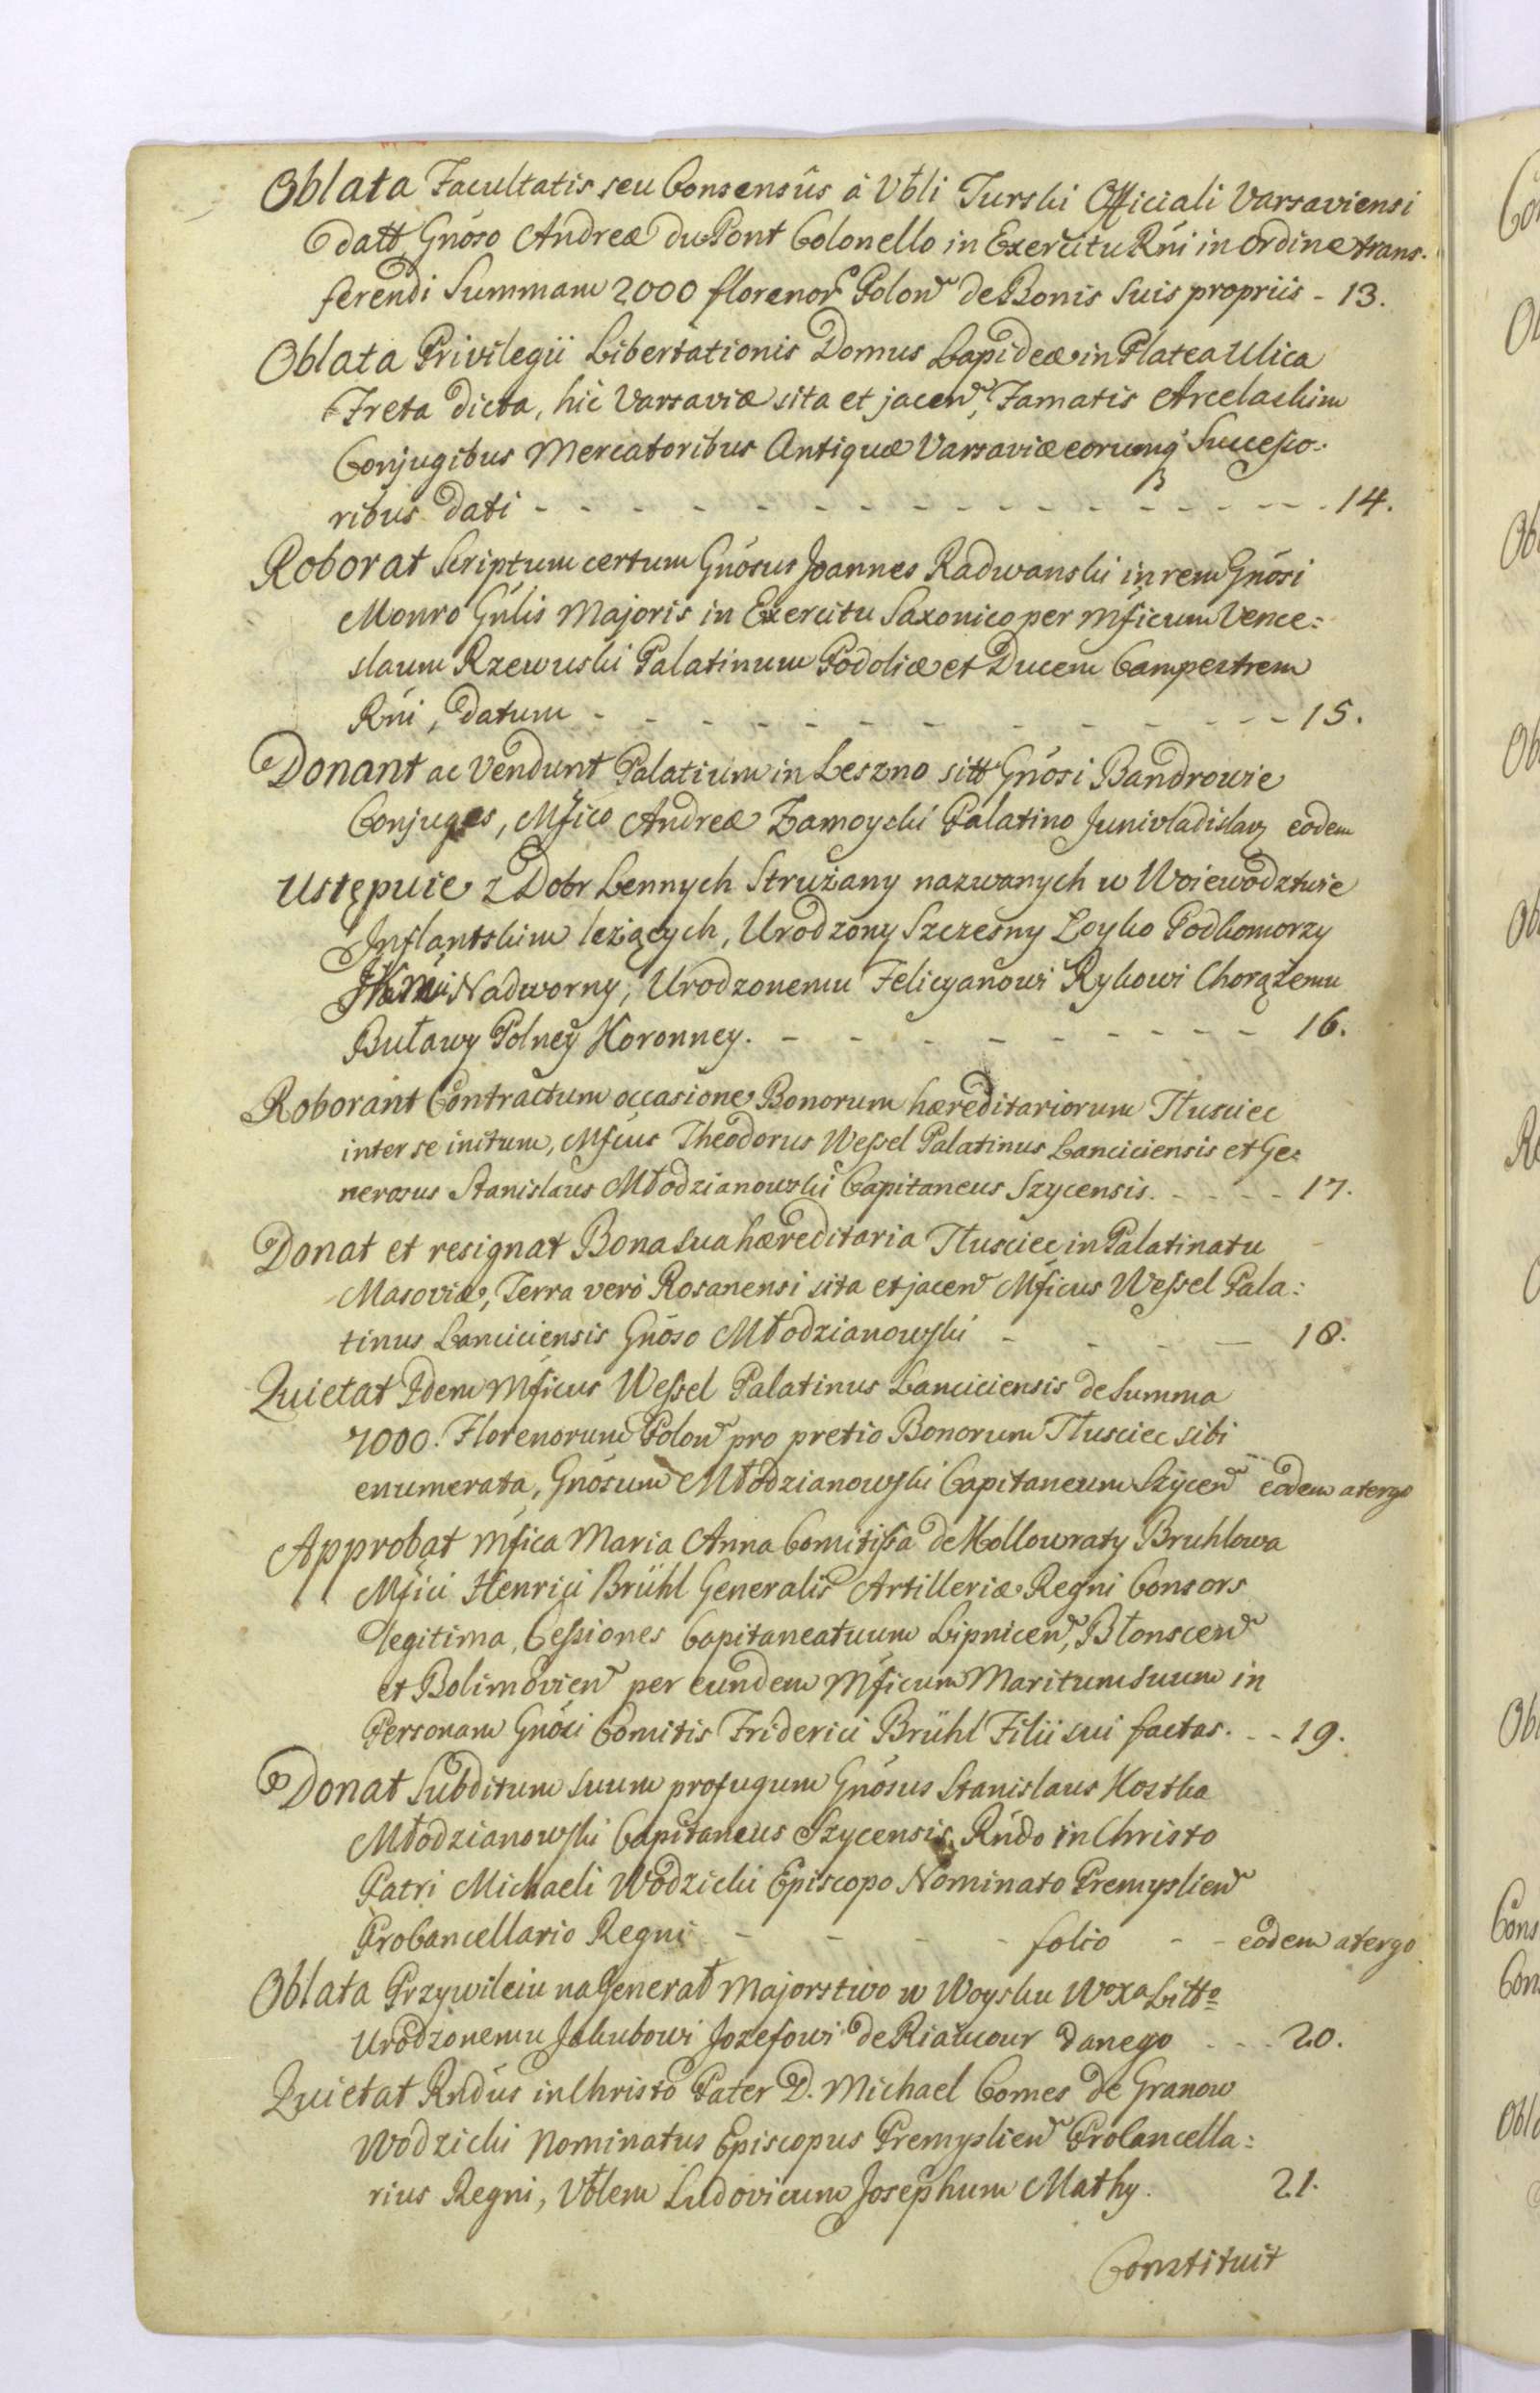 Oblata Facultatis seu Consensûs à Vbli Turski Officiali Varsaviensi
datt Gnóso Andreæ du Pont Colonello in Exercitu Rńi in ordine trans-
ferendi Summam 2000 florenor Polon de Bonis suis propriis - 13.
Oblata Privilegii Libertationis Domus Lapideæ in Platea Ulica
Freta dicta, hic Varsaviæ sita et jacen, Famatis Arcelaskim
Conjugibus Mercatoribus Antiquæ Varsaviæ eorumq Successo-
ribus dati - - - - - - - - - - - - - - - 14.
Roborat Scriptum certum Gnósus Joannes Radwanski in rem Gnósi
Monro Gńlis Majoris in Exercitu Saxonico per Mficum Vence:
slaum Rzewuski Palatinum Podoliæ et Ducem Campestrem
Rńi, datum - - - - - - - - - - - - 15.
Donant ac Vendunt Palatium in Leszno sitt Gnósi Bandrowie
Conjuges, Mfico Andreæ Zamoyski Palatino Junivladislav eodem
Ustępuie z Dobr Lennych Strużany nazwanych w Woiewodztwie
Inflantskim leżących, Urodzony Szczęsny Łoyko Podkomorzy
Nadworny, Urodzonemu Felicyanowi Rykowi Chorążemu
Buławy Polney Koronney. - - - - - - - - 16.
Roborant Contractum occasione Bonorum hæreditariorum Tłusciec
inter se initum, Mficus Theodorus Wessel Palatinus Lanciciensis et Ge:
nerosus Stanislaus Młodzianowski Capitaneus Szycensis. - - - - 17.
Donat et resignat Bona sua hæreditaria Tłusciec in Palatinatu
Masoviæ, Terra verò Rosanensi sita et jacen Mficus Wessel Pala:
tinus Lanciciensis Gnóso Młodzianowski - - - - 18.
Quietat Idem Mficus Wessel Palatinus Lanciciensis de Summa
7000. Florenorum Polon pro pretio Bonorum Tłusciec sibi
enumerata, Gnósum Młodzianowski Capitaneum Szycen eodem atergo
Approbat Mfica Maria Anna Comitissa de Kollowraty Bruhlowa
Mfici Henrici Brühl Generalis Artilleriæ Regni Consors
legitima, Cessiones Capitaneatuum Lipnicen, Błonscen
et Bolimovien per eundem Mficum Maritum suum in
Personam Gnósi Comitis Friderici Brühl Filii sui factas. - - 19.
Donat Subditum suum profugum Gnósus Stanislaus Kostka
Młodzianowski Capitaneus Szycensis, Rńdo in Christo
Patri Michaeli Wodzicki Episcopo Nominato Premyslien
Procancellario Regni - - - - folio - - eodem atergo
Oblata Przywileiu na Generał Majorstwo w Woysku Wo Xa Litto
Urodzonemu Jakubowi Jozefowi de Riaucour danego - - - 20.
Quietat Rndus in Christo Pater D. Michael Comes de Granow
Wodzicki Nominatus Episcopus Premyslien Procancella:
rius Regni, Vblem Ludovicum Josephum Mathy. 21.
Constituit